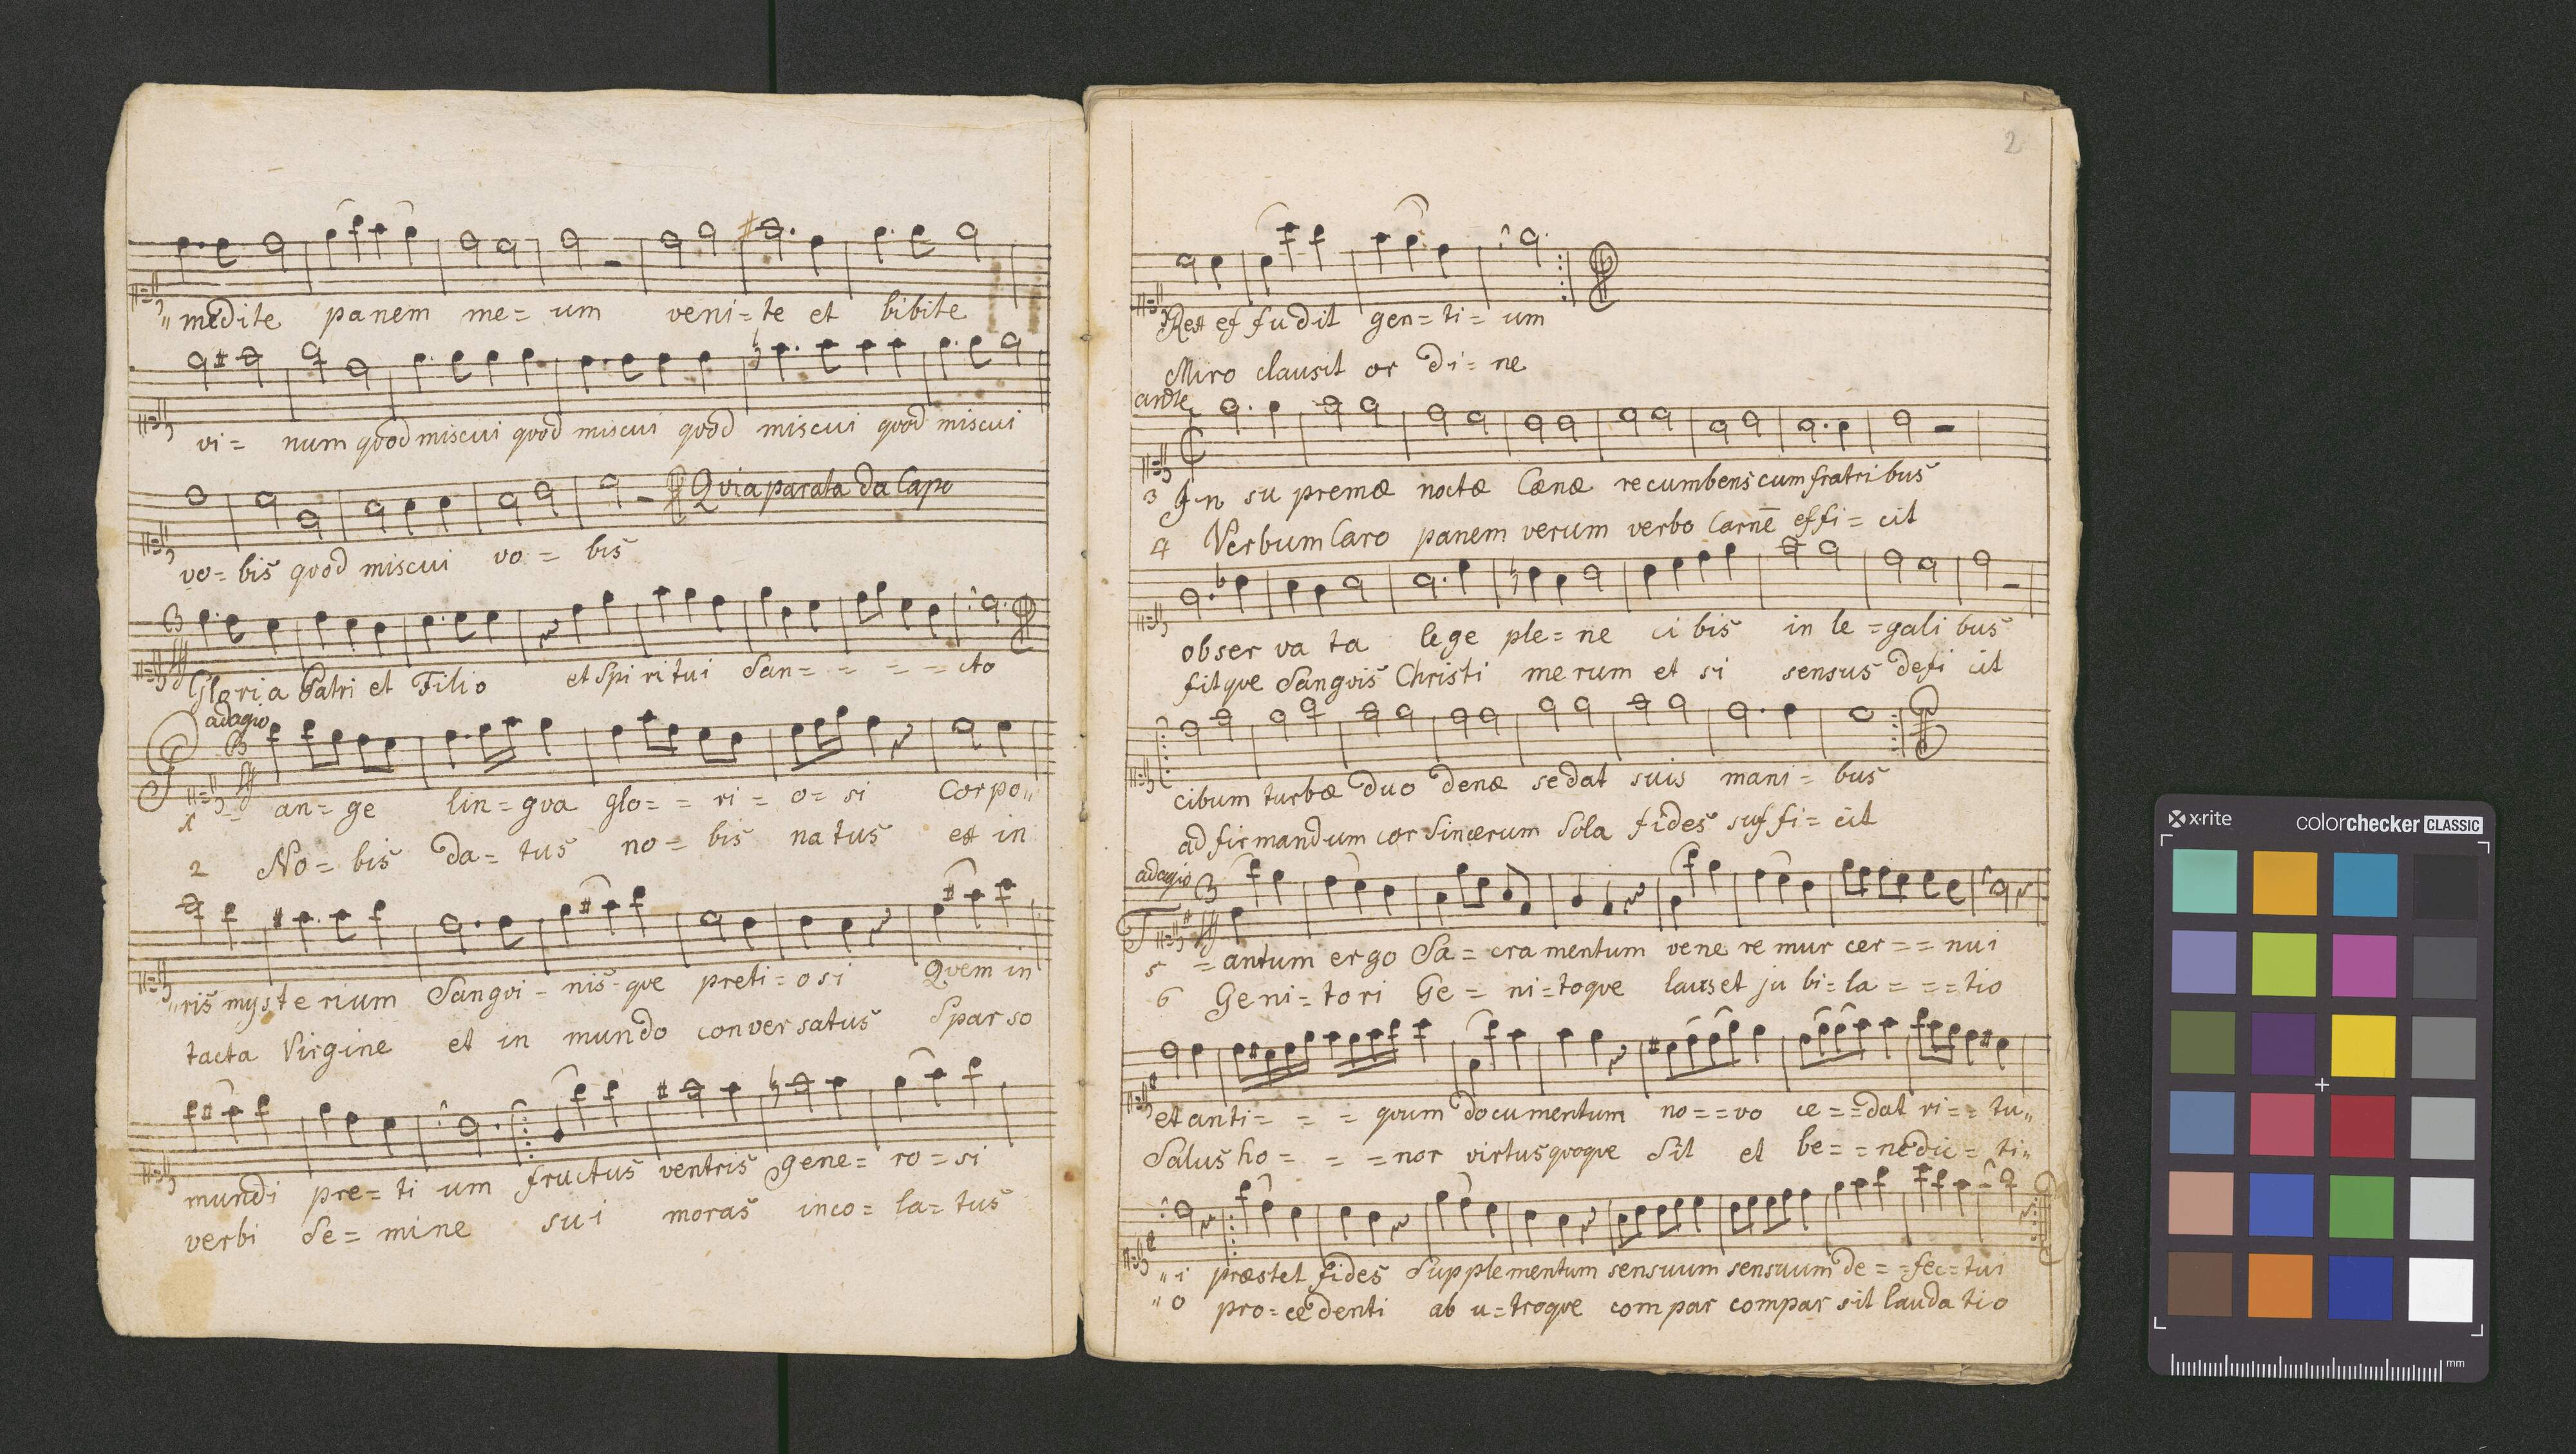 „medite panem me= um veni=te et bibite
vi= num quod miscui quod miscui quod miscui quod miscui
Quia parata da Capo
vo=bis quod miscui vo= bis
Gloria Patri et Filio et Spiritui San= = = = cto
adagio
Pan=ge lin=gva glo= = ri= o= si Corpo„
2 No=bis da=tus no=bis natus est in
„ris mysterium Sangvi=nis=que preti=osi Quem in
tacta Virgine et in mundo conversatus Sparso
mundi pre=ti um fructus ventris gene=ro=si
verbi Se=mine sui moras inco=la=tus
2
Rex effudit gen=ti=um
Miro clausit or di=ne
andte
3 In su premæ noctæ Cænæ recumbens cum fratribus
4 Verbum Caro panem verum verbo Carnē effi=cit
obser va ta lege ple=ne cibis in le=galibus
fitque Sangvis Christi merum et si sensus defi cit
cibum turbæ duo denæ se dat suis mani=bus
ad firmandum cor Sincerum Sola fides suffi=cit
adagio
5 Tantum ergo Sa=cramentum vene re mur cer== nui
6 Geni=tori Ge=ni=toque laus et ju bi=la= ==tio
et anti= = = quum documentum no==vo ce==dat ri== tu„
Salus ho= = =nor virtus quoque Sit et be==nedic=ti„
„i præstet fides Supplementum sensuum sensuum de==fec=tui
„o pro=cedenti ab u=troque compar compar sit laudatio
x-rite colorchecker CLASSIC
mm